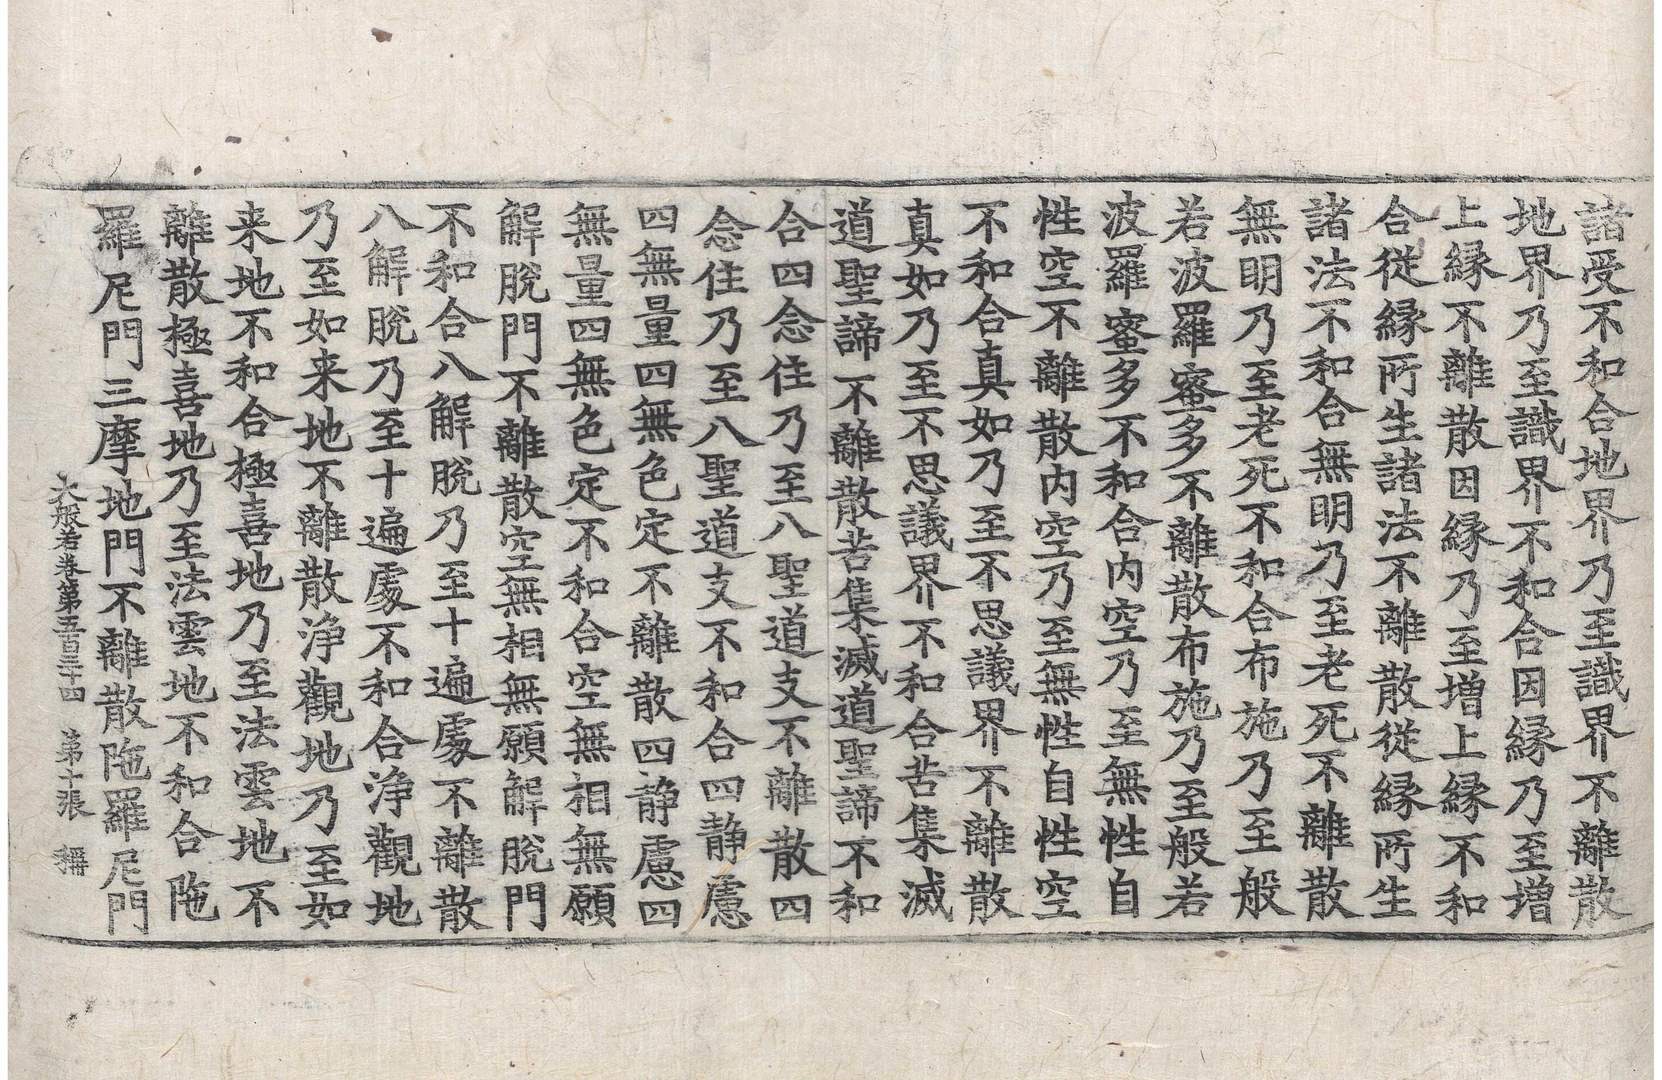 諸受不和合地界乃至識界不離散
地界乃至識界不和合因縁乃至增
上縁不離散因縁乃至增上縁不和
合從縁所生諸法不離散從縁所生
諸法不和合無明乃至老死不離散
無明乃至老死不和合布施乃至般
若波羅蜜多不離散布施乃至般若
波羅蜜多不和合内空乃至無性自
性空不離散内空乃至無性自性空
不和合真如乃至不思議界不離散
真如乃至不思議界不和合苦集滅
道聖諦不離散苦集滅道聖諦不和
合四念住乃至八聖道支不離散四
念住乃至八聖道支不和合四静慮
四無量四無色定不離散四静慮四
無量四無色定不和合空無相無願
解脫門不離散空無相無願解脫門
不和合八解脫乃至十遍處不離散
八解脫乃至十遍處不和合淨觀地
乃至如来地不離散淨觀地乃至如
来地不和合極喜地乃至法雲地不
離散極喜地乃至法雲地不和合陁
羅尼門三摩地門不離散陁羅尼門
大般若卷第五百三十四 第十張 稱